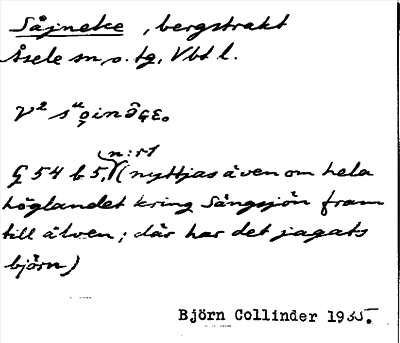 Såjneke, bergstrakt
Åsele sn o. tg, Vbt l.
G 54 b 5, n:r 1 (nyttjas även om hela
höglandet kring Sängsjön fram
till älven; där har det jagats
björn)
Björn Collinder 1935.